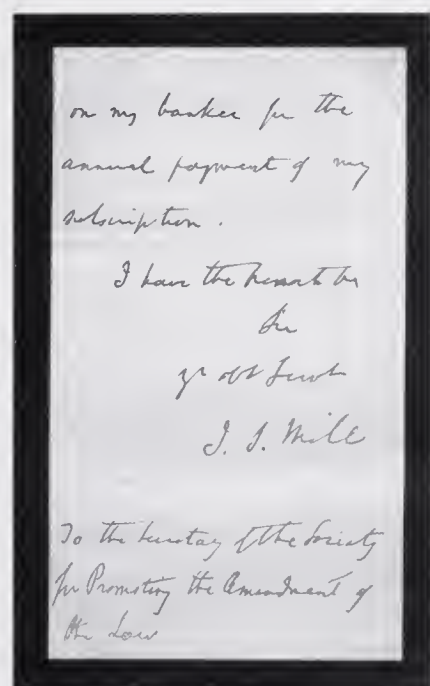 on my banker for the
annual payment of my
subscription.
I have the honor to be
Sir
yr obt Servt
J. S. Mill
To the Secretary of the Society
for Promoting the Amendment of
the Law